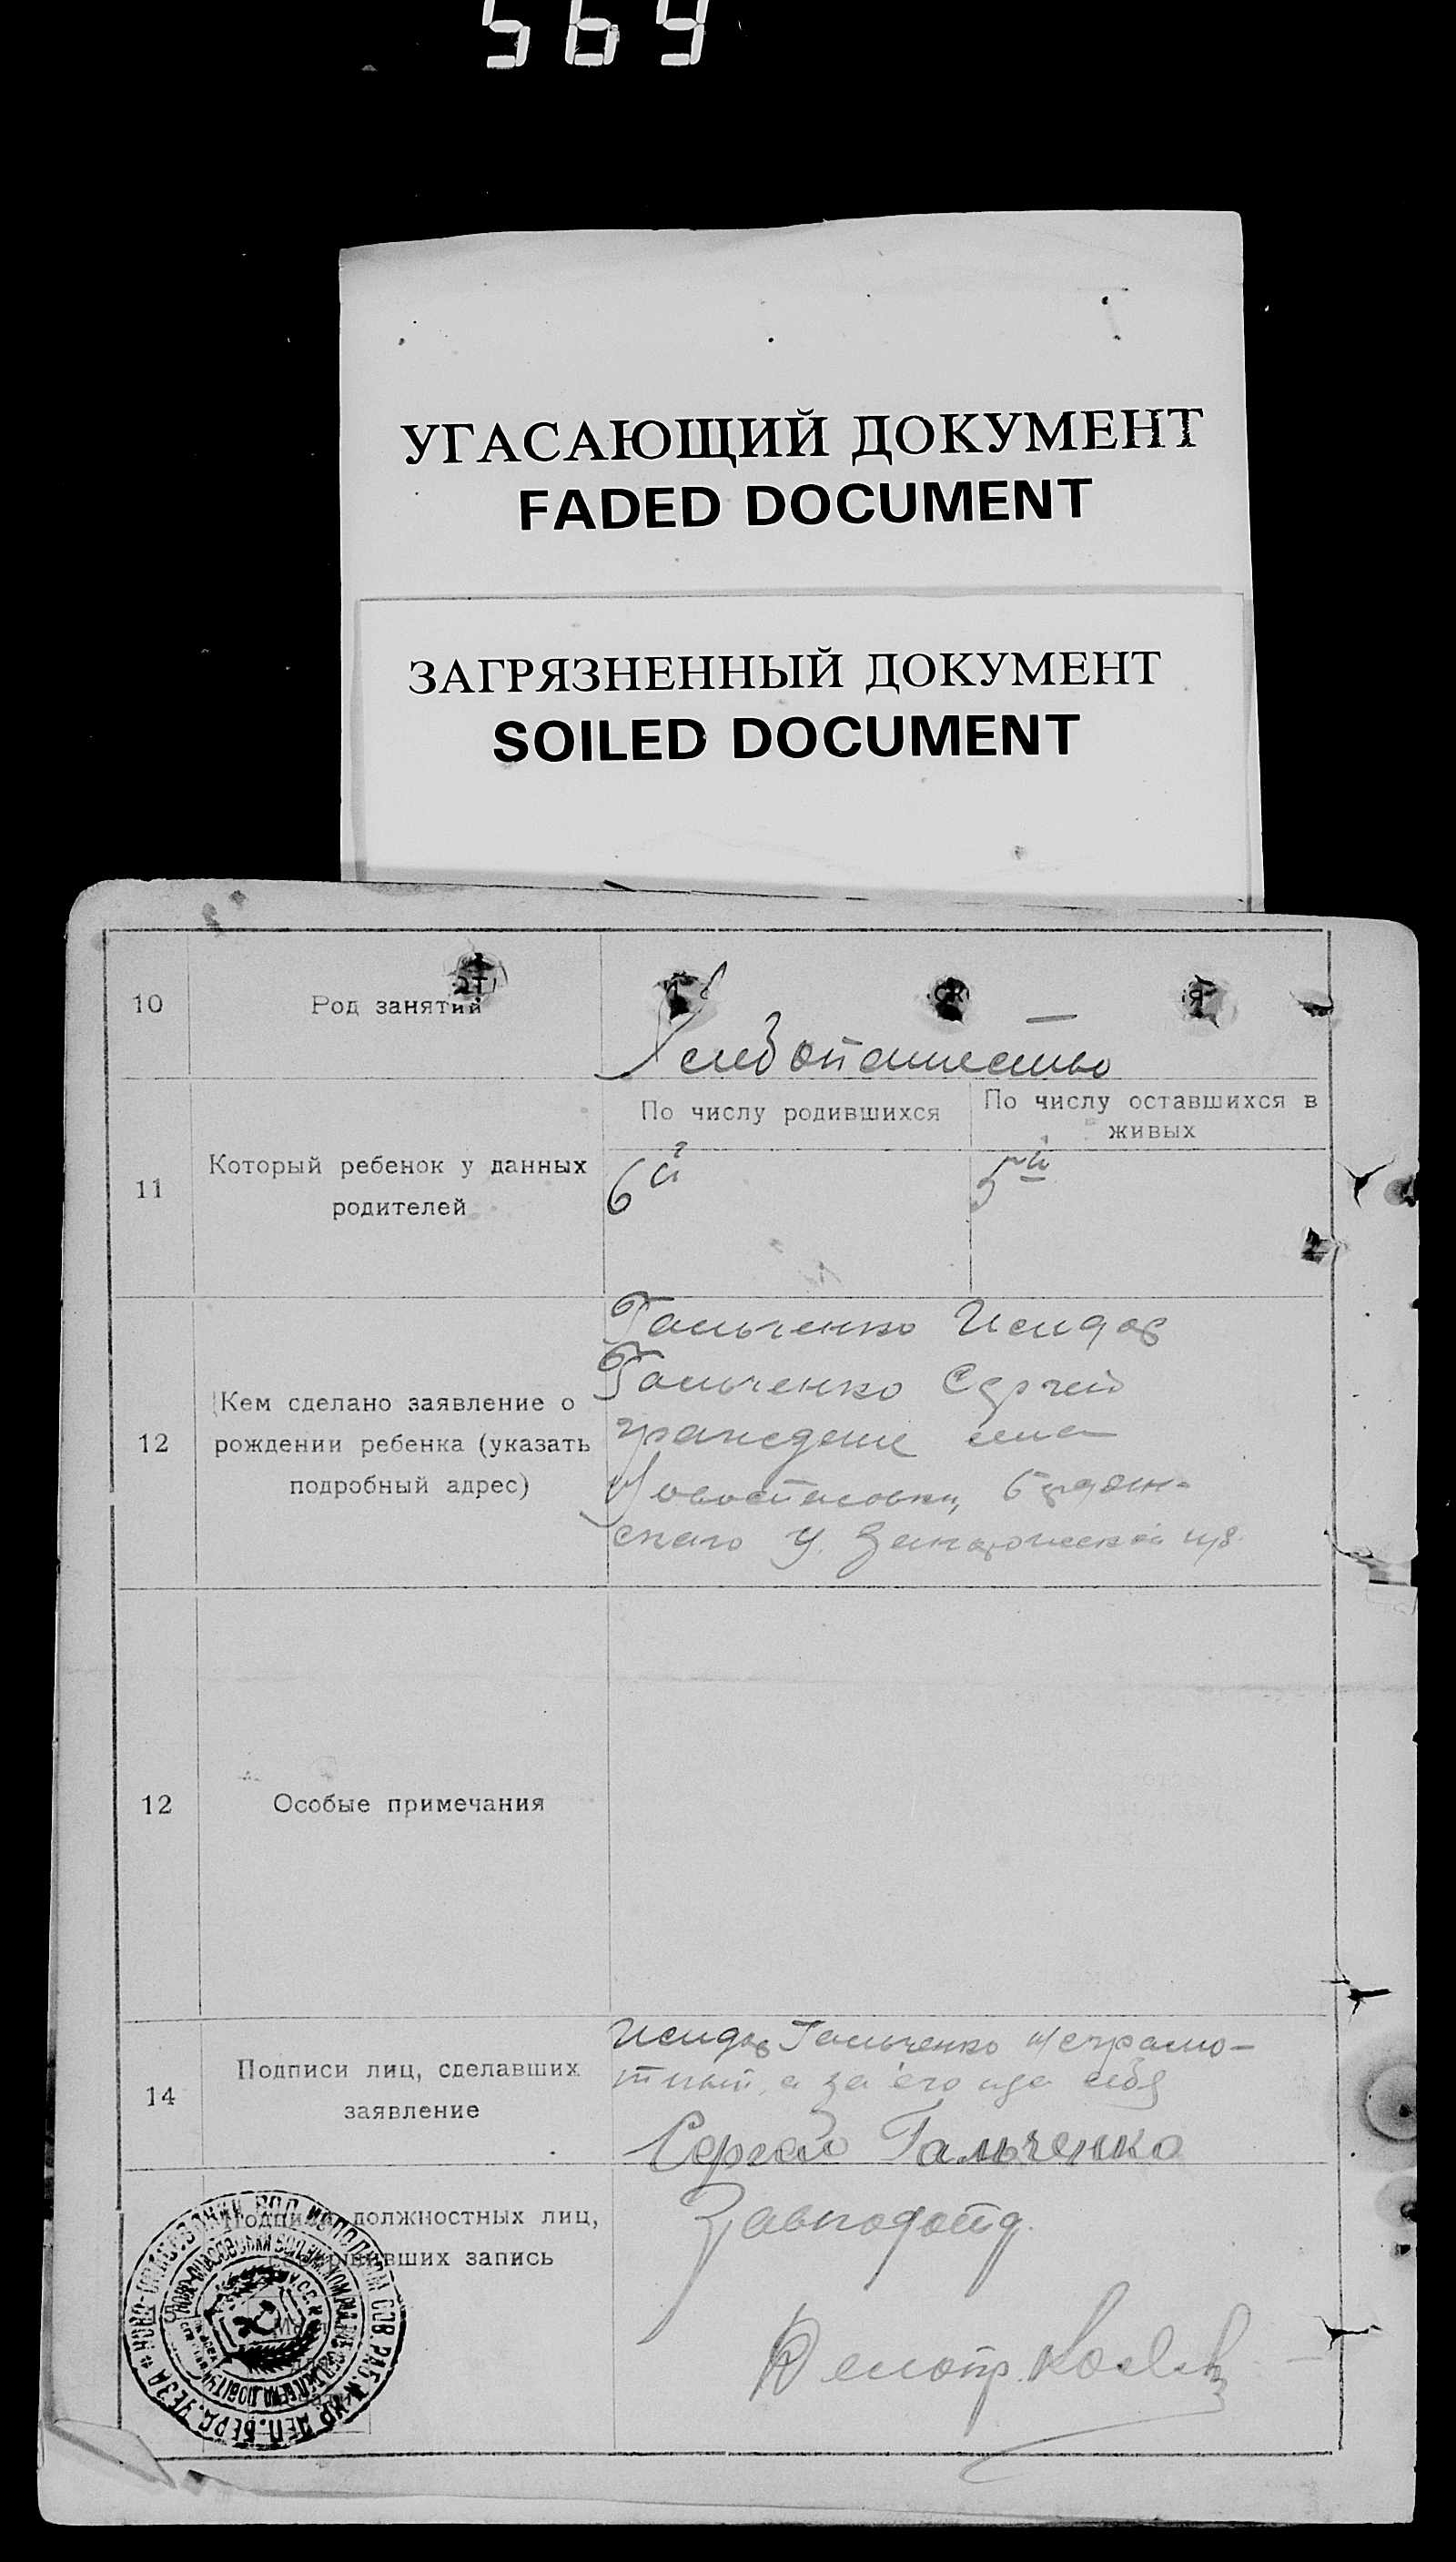 569
УГАСАЮЩИЙ ДОКУМЕНТ
FADED DOCUMENT
ЗАГРЯЗНЕННЫЙ ДОКУМЕНТ
SOILED DOCUMENT
10 Род занятий
Хлебопашество —
По числу родившихся
По числу оставшихся в
живых
11 Который ребенок у данных
родителей
6й
5й
12 Кем сделано заявление о
рождении ребенка (указать
подробный адрес)
Гальченко Исидор
Гальченко Сергей
граждане села
Новоспасовки, Бердян-
скаго у. Запорожской губ.
12 Особые примечания
14 Подписи лиц, сделавших
заявление
Исидор Гальченко неграмо-
тный, а за его и за себя
Сергей Гальченко
должностных лиц,
запись
Завподотд.
Делопр.